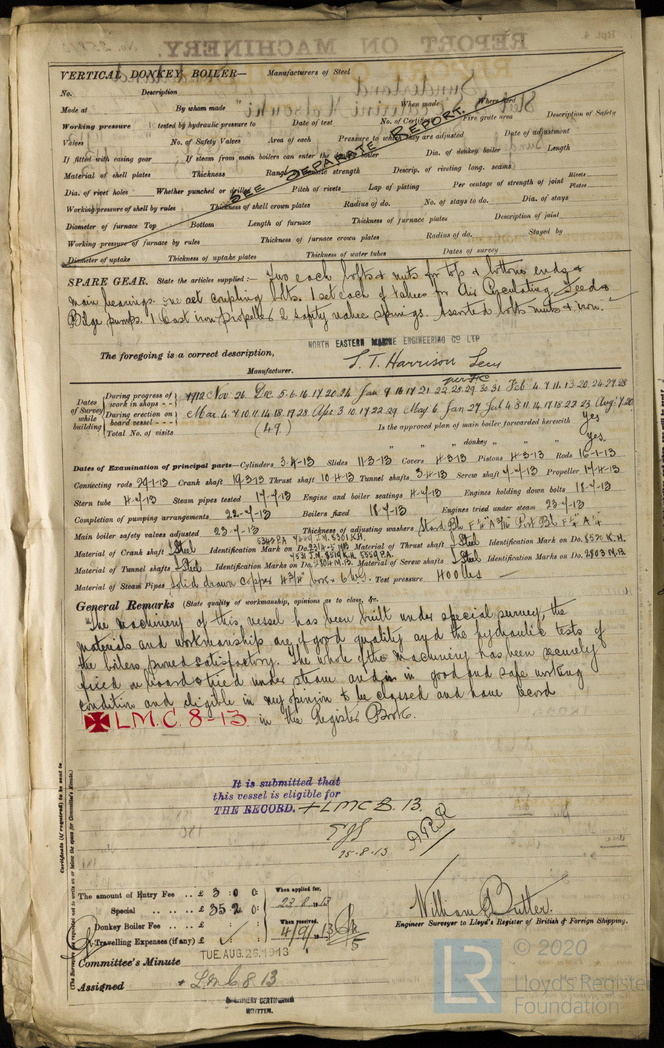 REPORT ON MACHINERY.
VERTICAL DONKEY BOILER— Manufacturers of Steel
No. Description
Made at By whom made When made Where fixed
Working pressure tested by hydraulic pressure to Date of test No. of Certificate Fire grate area Description of Safety
Valves No. of Safety Valves Area of each Pressure to which they are adjusted Date of adjustment
If fitted with easing gear If steam from main boilers can enter the donkey boiler Dia. of donkey boiler Length
Material of shell plates Thickness Range of tensile strength Descrip. of riveting long. seams
Dia. of rivet holes Whether punched or drilled Pitch of rivets Lap of plating Per centage of strength of joint Rivets Plates
Working pressure of shell by rules Thickness of shell crown plates Radius of do. No. of stays to do. Dia. of stays
Diameter of furnace Top Bottom Length of furnace Thickness of furnace plates Description of joint
Working pressure of furnace by rules Thickness of furnace crown plates Radius of do. Stayed by
Diameter of uptake Thickness of uptake plates Thickness of water tubes Dates of survey
SEE SEPARATE REPORT.
SPARE GEAR. State the articles supplied:— Two each bolts & nuts for top & bottom ends &
main bearings. one set coupling bolts. 1 set each of valves for Air Circulating Feed &
Bilge pumps. 1 Cast iron propeller 2 safety valve springs. Assorted bolts nuts & iron.
The foregoing is a correct description,
NORTH EASTERN MARINE ENGINEERING CO LTD
S. T. Harrison Secy
Manufacturer.
Dates of Survey while building
During progress of work in shops - - 1912 Nov 26 Dec 5. 6. 16. 17. 20. 24 Jan 9 16 17 21 22. 28. 29. 30. 31 Feb 4. 7. 11. 13. 20. 24. 27. 28
During erection on board vessel - - - Mar. 4. 7. 10. 11. 14. 18. 17. 28 Apr 3. 10. 17. 22. 29
Total No. of visits (49) Is the approved plan of main boiler forwarded herewith Yes
" " " donkey " " Yes.
Dates of Examination of principal parts—Cylinders 3-4-13 Slides 11-3-13 Covers 4-3-13 Pistons 4-3-13 Rods 16-1-13
Connecting rods 29-1-13 Crank shaft 19-3-13 Thrust shaft 10-4-13 Tunnel shafts 3-4-13 Screw shaft 4-4-13 Propeller 17-4-13
Stern tube 4-4-13 Steam pipes tested 17-7-13 Engine and boiler seatings 4-4-13 Engines holding down bolts 18-7-13
Completion of pumping arrangements 22-7-13 Boilers fixed 18-7-13 Engines tried under steam 23-7-13
Main boiler safety valves adjusted 23-7-13 Thickness of adjusting washers
Material of Crank shaft Steel Identification Mark on Do. Material of Thrust shaft Steel Identification Mark on Do. 8570 K.H.
Material of Tunnel shafts Steel Identification Marks on Do. Material of Screw shafts Steel Identification Marks on Do. 2803 M.B.
Material of Steam Pipes Solid drawn copper Test pressure 400 lbs —
General Remarks (State quality of workmanship, opinions as to class, &c.
The machinery of this vessel has been built under special survey, the
materials and workmanship are of good quality and the hydraulic tests of
the boilers proved satisfactory. The whole of the machinery has been securely
fixed on board & tried under steam and is in good and safe working
condition and eligible in my opinion to be classed and have record
✠ L.M.C. 8-13. in the Register Book.
Certificate (if required) to be sent to
(The Surveyors are requested not to write on or below the space for Committee's Minute.)
It is submitted that
this vessel is eligible for
THE RECORD. + LMC 8. 13.
25-8-13
The amount of Entry Fee .. £ 3 : 0 : 0 When applied for,
Special .. .. .. £ 35 2 0 : 23.8.1913
Donkey Boiler Fee .. .. £ : : When received,
Travelling Expenses (if any) £ : : 4/9/1913
William Butler.
Engineer Surveyor to Lloyd's Register of British & Foreign Shipping.
Committee's Minute TUE. AUG. 26. 1913
Assigned + LMC 8.13
MACHINERY CERTIFICATE
WRITTEN.
© 2020
LR Lloyd's Register
Foundation